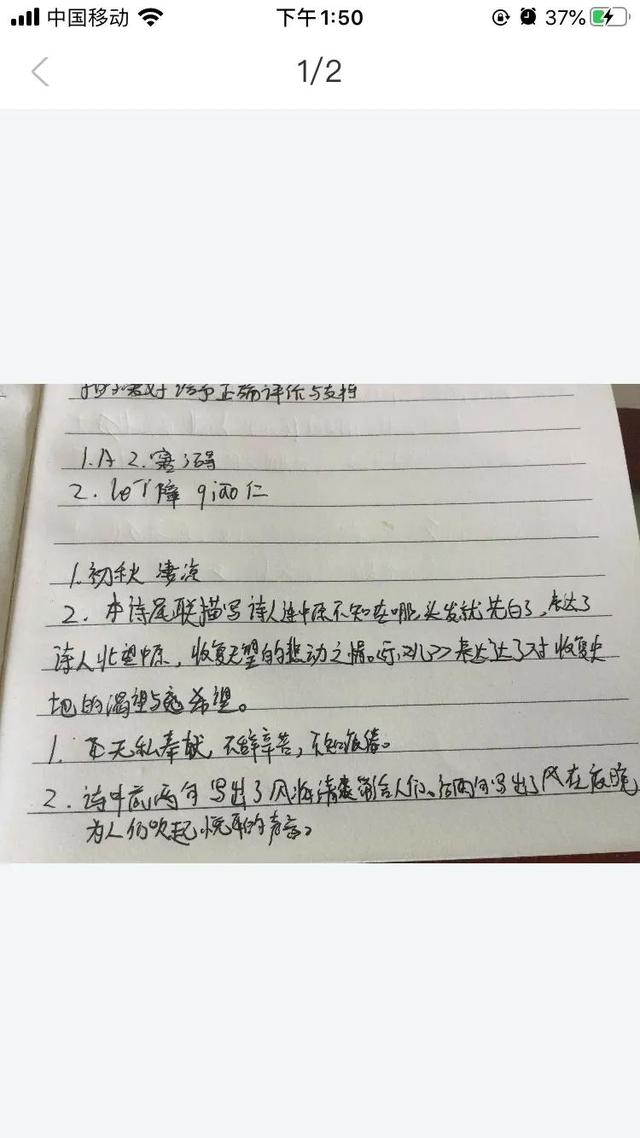 中国移动 下午1:50 37%
1/2
正确评价与支持
1.A 2.
2. 障 qiāo 仁
1.初秋 凄凉
2.本诗尾联描写诗人连中原不知在哪,头发就先白了,表达了
诗人北望中原,收复无望的悲动之情。表达了对收复失
地的渴望与希望。
1.无私奉献,不辞辛苦,不知疲倦。
2.诗中前两句写出了风将清爽带给人们。后两句写出了风在夜晚
为人们吹起悦耳的声音。